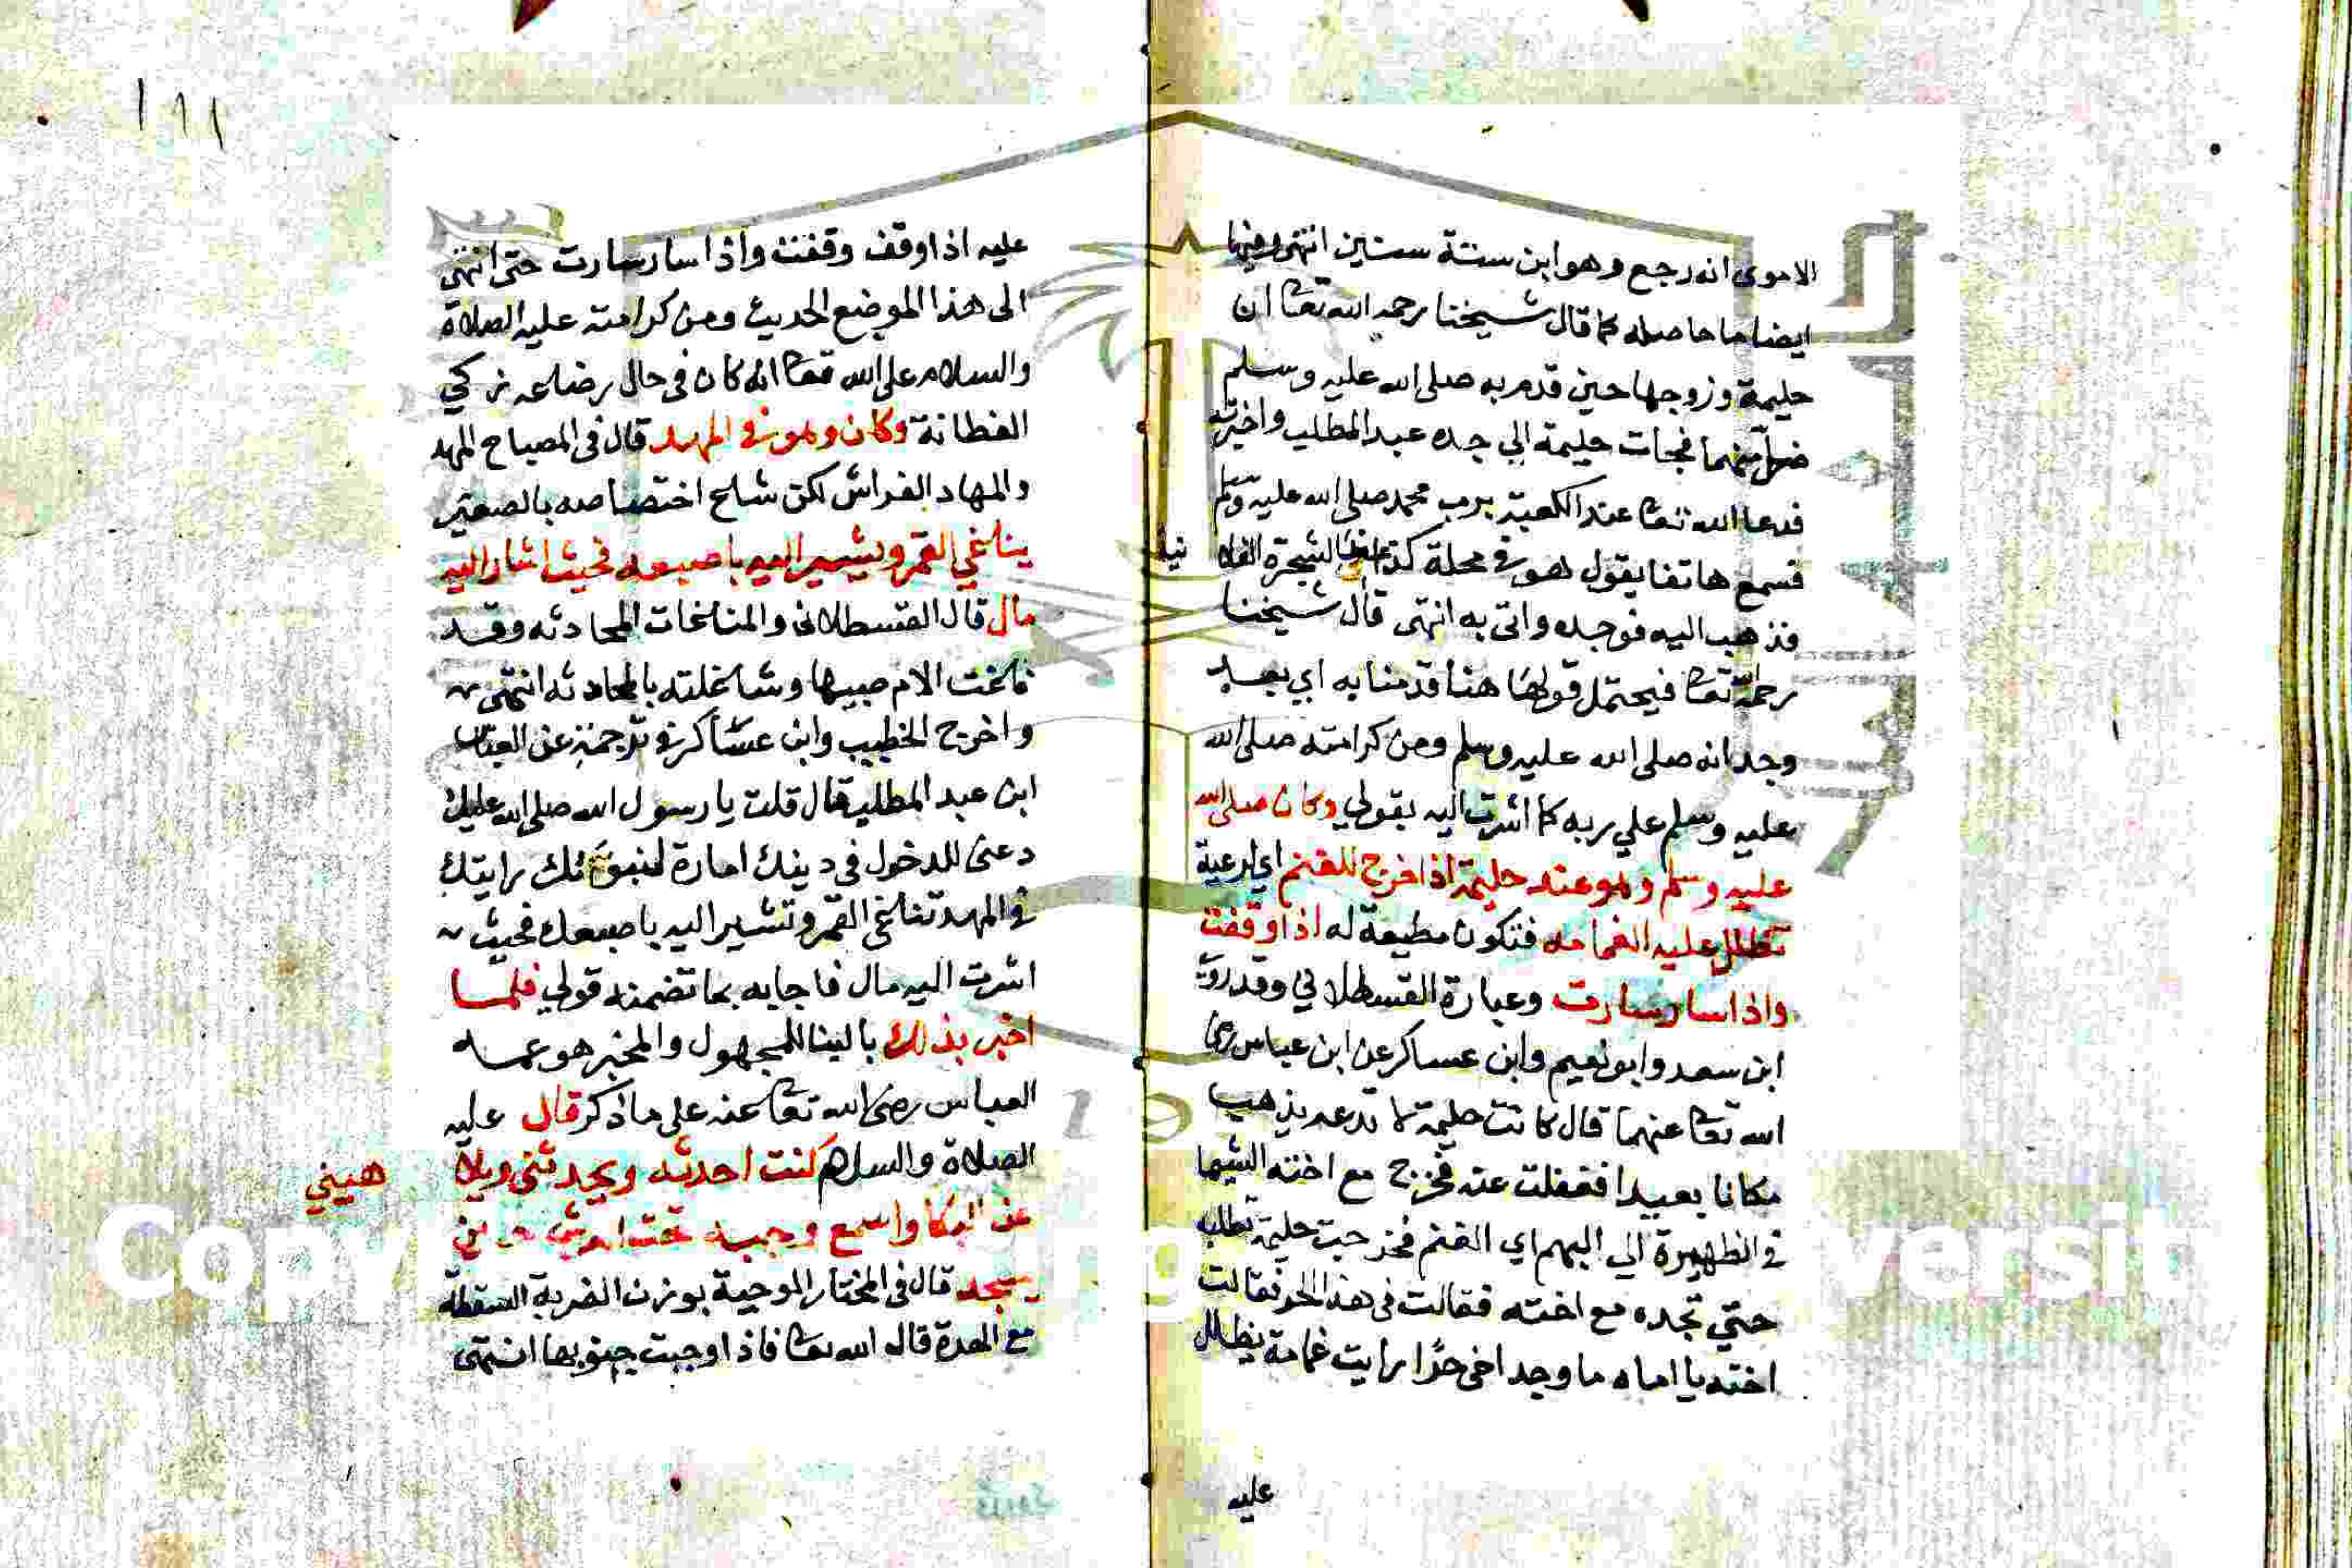 الاموي انه رجع وهو ابن ستة سنين انتهى وفيها
ايضا ما حاصله كما قال شيخنا رحمه الله تعا ان
حليمة وزوجها حين قدم به صلى الله عليه وسلم
ضل منهما فجات حليمة الي جده عبد المطلب واخبرته
فدعا الله تعا عند الكعبة برب محمد صلى الله عليه وسلم
فسمع هاتفا يقول هو في محلة كذا الشجرة الفلا نية
فذهب اليه فوجده واتى به انتهى قال شيخنا
رحمه تعا فيحتمل قولها هنا قدمنا به اي بعد
وجدانه صلى الله عليه وسلم ومن كرامته صلى الله
عليه وسلم علي ربه كما اشرت اليه بقولي وكان صلى الله
عليه وسلم وهو عند حليمة اذا خرج للغنم اي لرعية
تظلل عليه الغمامه فتكون مطيعة له اذا وقفت
واذا سار سارت وعبارة القسطلاني وقد روى
ابن سعد وابو نعيم وابن عساكر عن ابن عباس رضى
الله تعا عنهما قال كانت حليمة لا تدعه يذهب
مكانا بعيدا فغفلت عنه فخرج مع اخته الشيما
في الظهيرة الي البهم اي الغنم فخرجت حليمة تطلبه
حتي تجده مع اخته فقالت في هذا الحر فقالت
اخته يا اماه ما وجد اخي حرا رايت غمامة تظلل
عليه
١٦٦
عليه اذا وقف وقفت واذا سار سارت حتى انتهى
الى هذا الموضع الحديث ومن كرامته عليه الصلاة
والسلام على الله تعا انه كان في حال رضاعه زكي
الفطانة وكان وهو في المهد قال في المصباح المهد
والمهاد الفراش لكن شاع اختصاصه بالصغير
يناغي القمر ويشير اليه باصبعه فحيث اشار اليه
مال قال القسطلاني والمناغات المحادثه وقد
ناغت الام صبيها وشاغلته بالمحادثه انتهى
واخرج الخطيب وابن عساكر في ترجمة عن العباس
ابن عبد المطلب قال قلت يا رسول الله صلى الله عليك
دعني للدخول في دينك امارة لنبوتك رايتك
في المهد تناغي القمر وتشير اليه باصبعك فحيث
اشرت اليه مال فاجابه بما تضمنه قولي فلما
اخبر بذلك بالبنا للمجهول والمخبر هو عمه
العباس رضى الله تعا عنه على ما ذكر قال عليه
الصلاة والسلام كنت احدثه ويحدثني ويلا هيني
عن البكا واسمع وجبه تحت العرش حين
يسجد قال في المختار الوجبة بوزن الضربة السقطة
مع الهدة قال الله تعا فاذا وجبت جنوبها انتهى